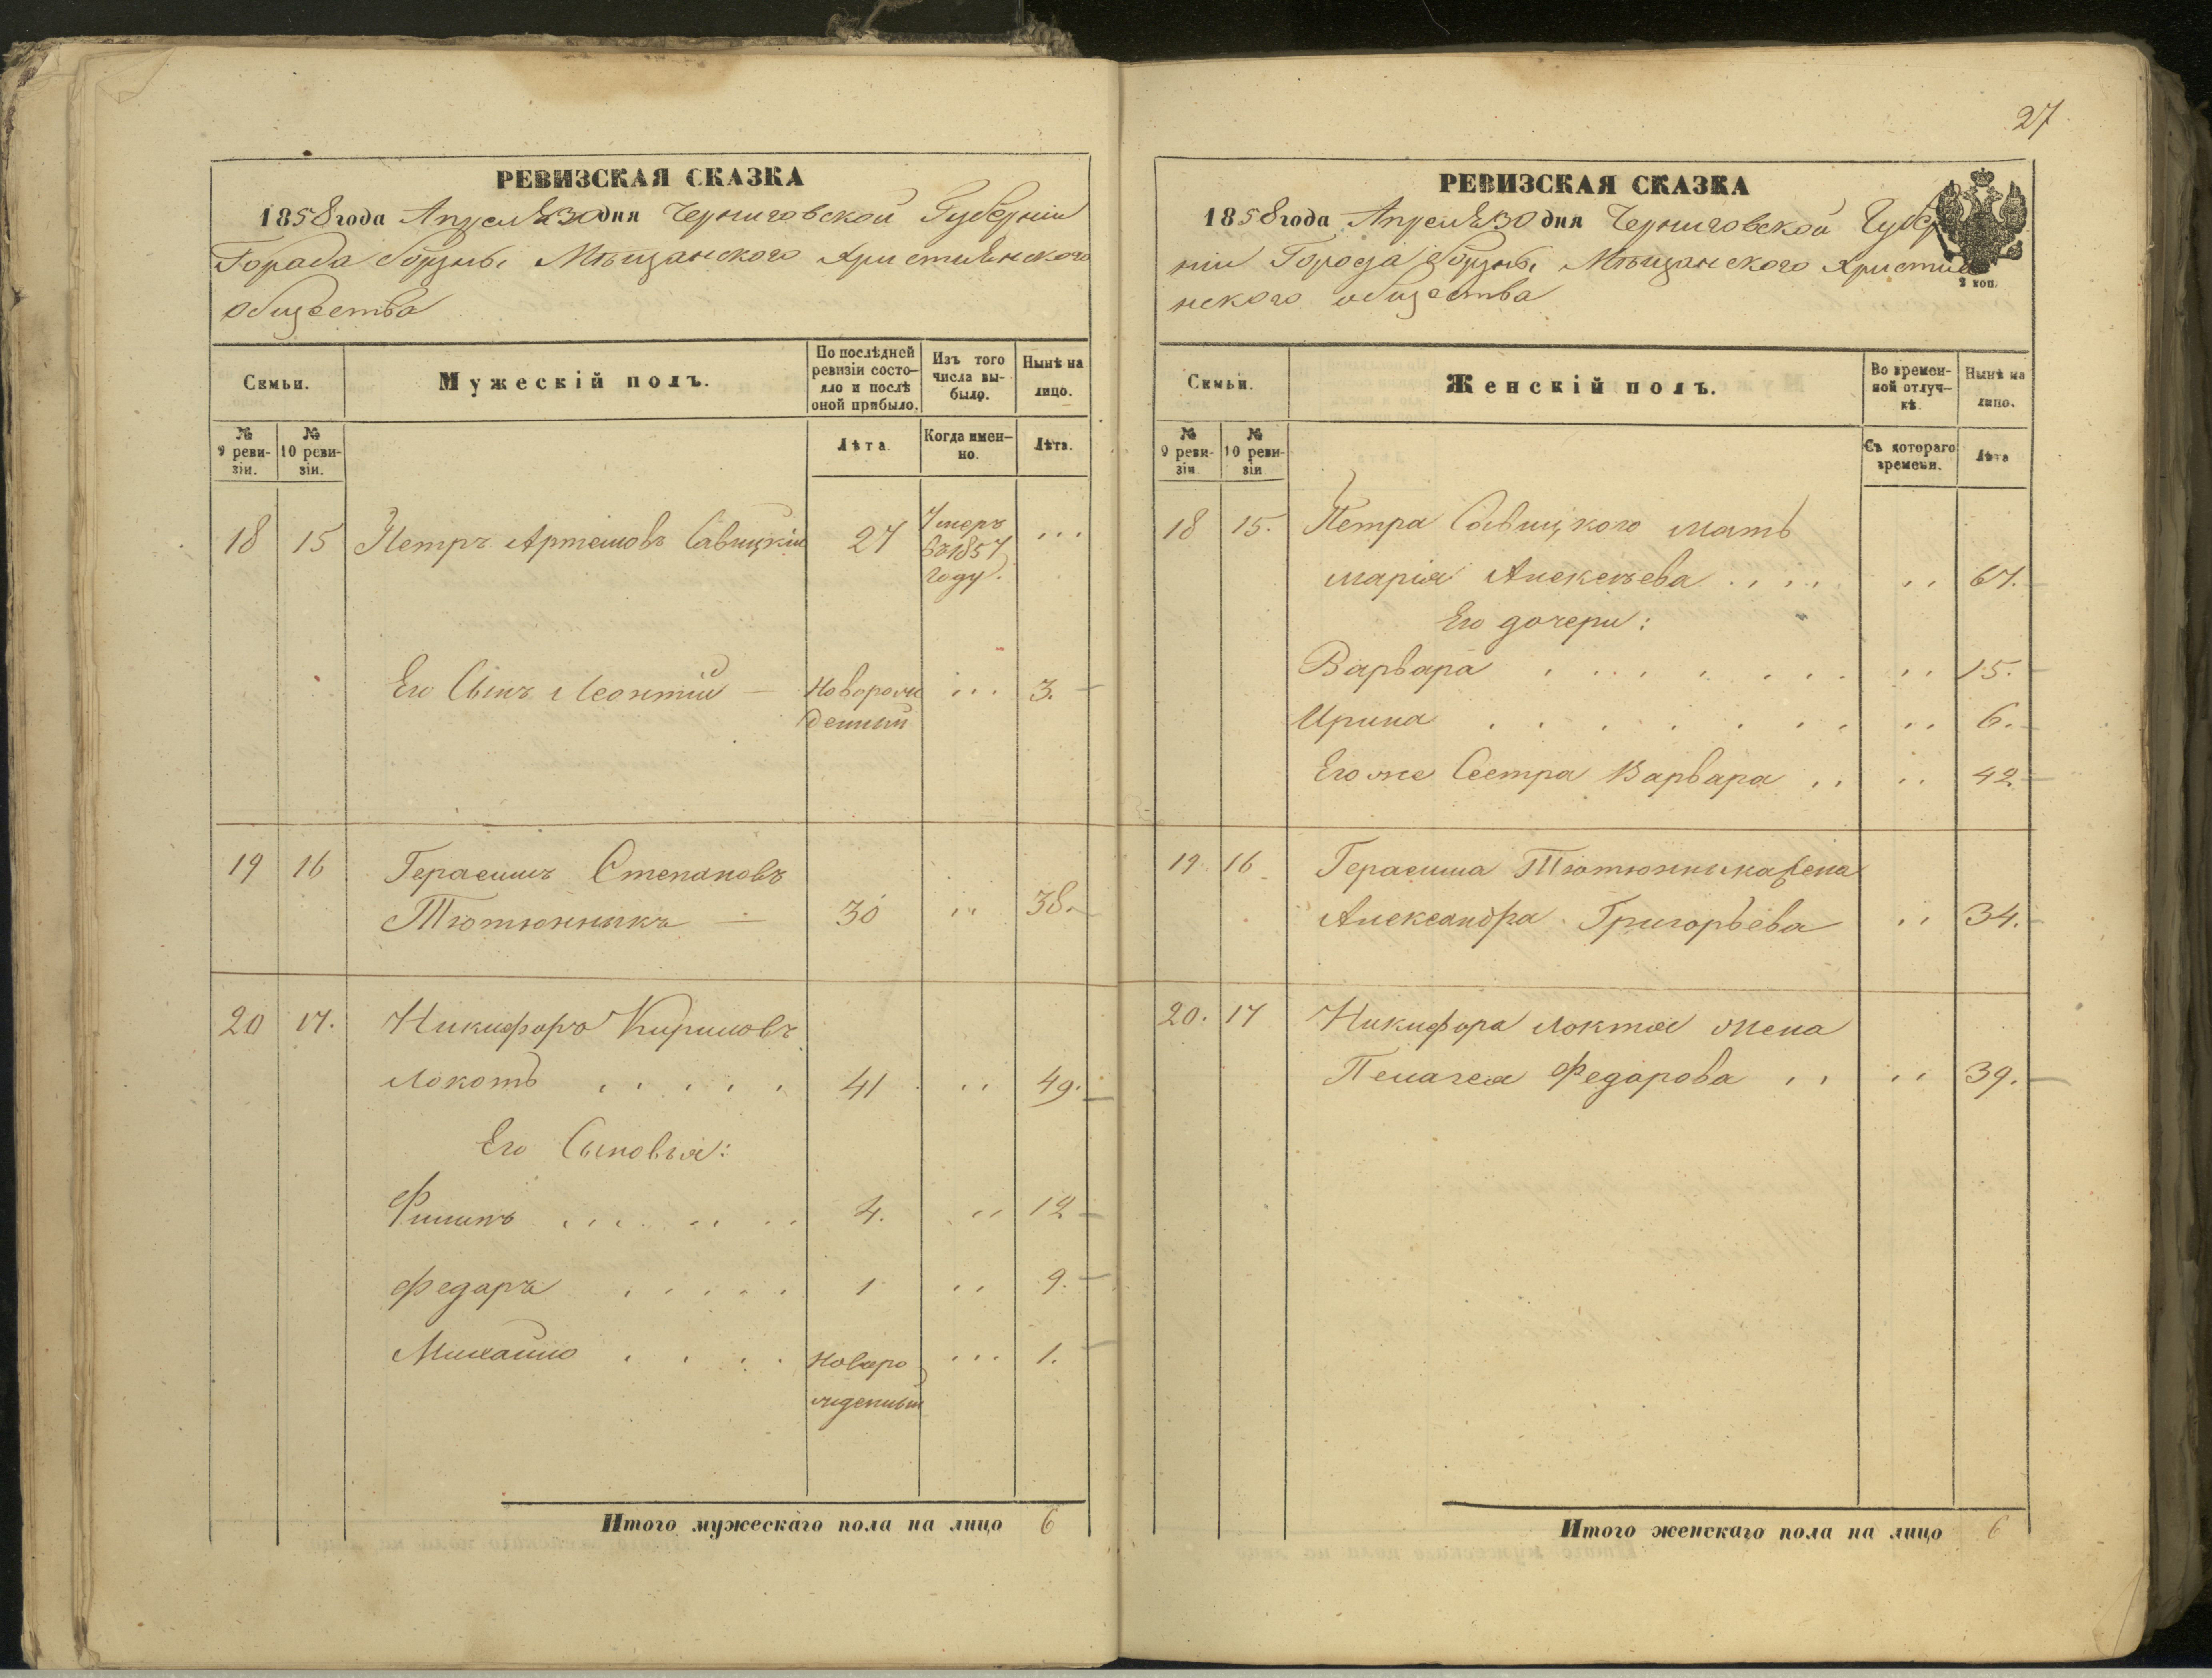 РЕВИЗСКАЯ СКАЗКА
1858 года Апреля 30 дня Черниговской Губерніи
Города Борзны Мѣщанского Христіянского
общества
Семьи.
Мужескій полъ.
По послѣдней ревизіи состояло и послѣ оной прибыло.
Изъ того числа выбыло.
Нынѣ на лицо.
№ 9 ревизіи.
№ 10 ревизіи.
Лѣта.
Когда именно.
Лѣта.
18 15 Петръ Артемовъ Савицкій 27 Умеръ въ 1857 году. ...
Его Сынъ Леонтій — Новорожденный ... 3.
19 16 Герасимъ Степановъ
Тютюнныкъ — 30 .. 38.
20 17. Никифоръ Кириловъ
Локоть . . . . . 41 .. 49.
Его Сыновья:
Филипъ ... .. .. 4. .. 12
Федоръ . . . . . 1 .. 9.
Михайло . . . . Новорожденный ... 1.
Итого мужескаго пола на лицо 6
27
РЕВИЗСКАЯ СКАЗКА
1858 года Апреля 30 дня Черниговской Губер
ніи Города Борзны Мѣщанского Христия
нского общества
2 коп.
Семьи.
Женскій полъ.
Во временной отлучкѣ.
Нынѣ на лицо.
№ 9 ревизіи.
№ 10 ревизіи
Съ котораго времени.
Лѣта
18 15. Петра Савицкого мать
Марія Алексѣева . . . . .. 67.
Его дочери:
Варвара . . . . . . . .. 15.
Ирина . . . . . . . .. 6.
Его же Сестра Варвара .. .. 42.
19. 16 Герасима Тютюнныка жена
Александра Григорьева .. 34.
20. 17 Никифора Локтя жена
Пелагея Федорова .. .. 39.
Итого женскаго пола на лицо 6